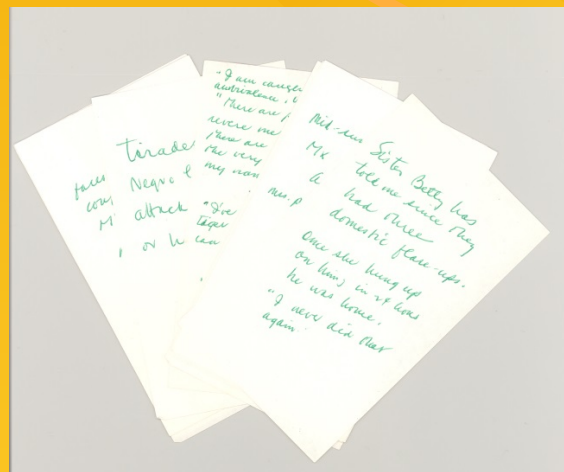 Tirade
faces
cow, Negro l
M attack
, or he can
"I am caught
ambivalence,
"There are p
revere me
There are
the very
my nam
"I've
tager
mes. p
Mid-sen Sister Betty has
Mx told me since they
a had three
domestic flare-ups.
Once she hung up
on him; in 24 hours
he was home.
"I never did that
again"